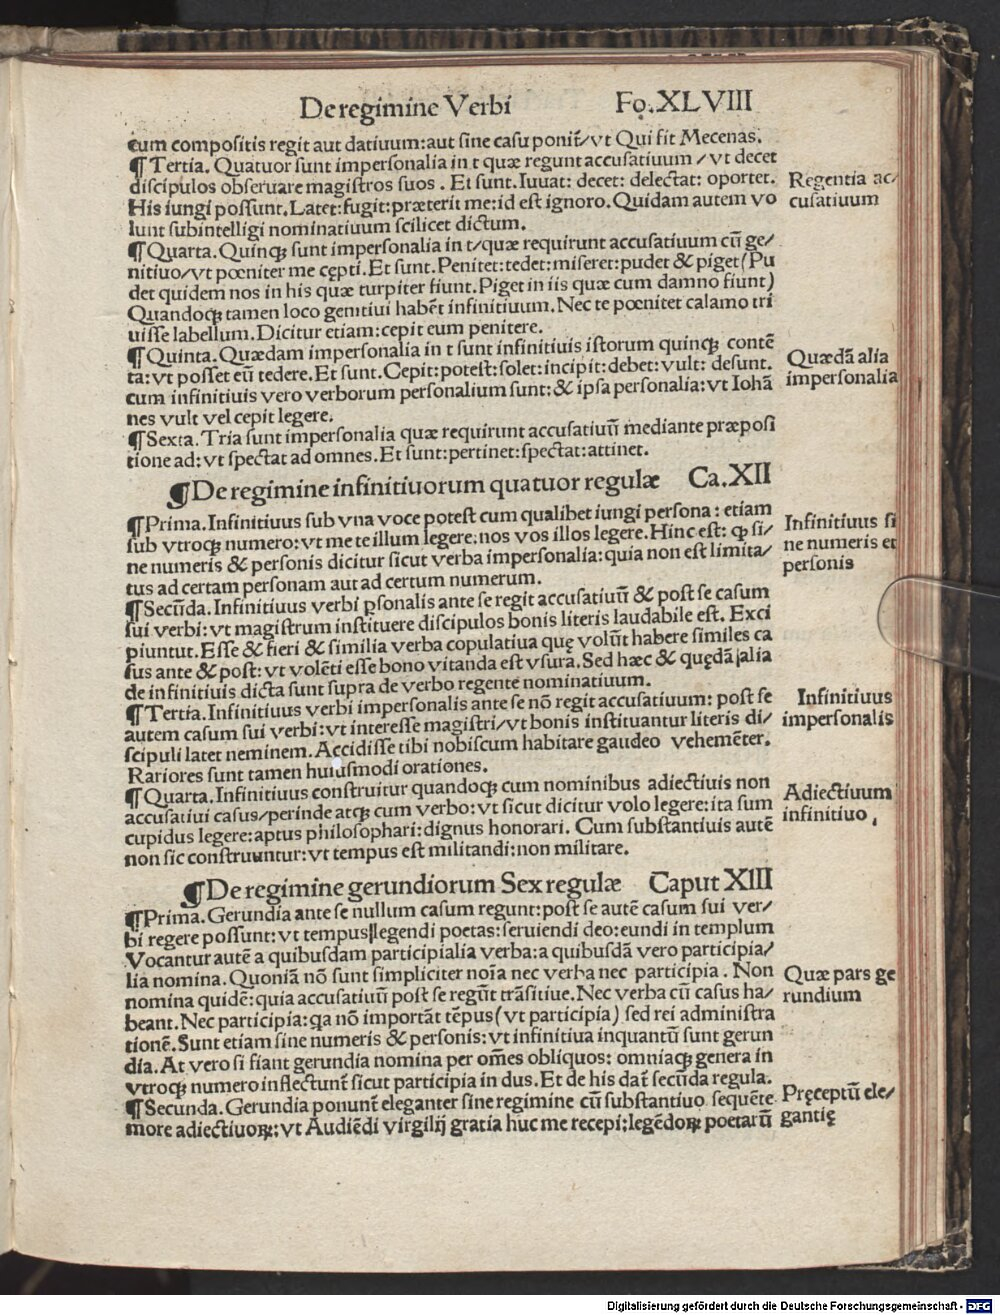 De regimine Verbi Fo. XLVIII
cum compositis regit aut datiuum: aut sine casu ponit̃/ vt Qui fit Mecenas.
¶ Tertia. Quatuor sunt impersonalia in t quæ regunt accusatiuum / vt decet
discipulos obseruare magistros suos. Et sunt. Iuuat: decet: delectat: oportet.
Regentia ac/
His iungi possunt. Latet: fugit: præterit me: id est ignoro. Quidam autem vo
cusatiuum
lunt subintelligi nominatiuum scilicet dictum.
¶ Quarta. Quinqꝫ sunt impersonalia in t/ quæ requirunt accusatiuum cũ ge/
nitiuo/ vt pœniter me cępti. Et sunt. Penitet: tedet: miseret: pudet & piget (Pu
det quidem nos in his quæ turpiter fiunt. Piget in iis quæ cum damno fiunt)
Quandoqꝫ tamen loco genitiui habẽt infinitiuum. Nec te pœnitet calamo tri
uisse labellum. Dicitur etiam: cepit eum penitere.
¶ Quinta. Quædam impersonalia in t sunt infinitiuis istorum quinqꝫ contẽ
Quædã alia
ta: vt posset eũ tedere. Et sunt. Cepit: potest: solet: incipit: debet: vult: desunt.
impersonalia
cum infinitiuis vero verborum personalium sunt: & ipsa personalia: vt Iohã
nes vult vel cepit legere.
¶ Sexta. Tria sunt impersonalia quæ requirunt accusatiuũ mediante præposi
tione ad: vt spectat ad omnes. Et sunt: pertinet: spectat: attinet.
¶ De regimine infinitiuorum quatuor regulæ Ca. XII
¶ Prima. Infinitiuus sub vna voce potest cum qualibet iungi persona: etiam
Infinitiuus si
sub vtroqꝫ numero: vt me te illum legere: nos vos illos legere. Hinc est: qꝫ si/
ne numeris et
ne numeris & personis dicitur sicut verba impersonalia: quia non est limita/
personis
tus ad certam personam aut ad certum numerum.
¶ Secũda. Infinitiuus verbi ꝑsonalis ante se regit accusatiuũ & post se casum
sui verbi: vt magistrum instituere discipulos bonis literis laudabile est. Exci
piuntut. Esse & fieri & similia verba copulatiua quę volũt habere similes ca
sus ante & post: vt volẽti esse bono vitanda est vsura. Sed hæc & quędã alia
de infinitiuis dicta sunt supra de verbo regente nominatiuum.
¶ Tertia. Infinitiuus verbi impersonalis ante se nõ regit accusatiuum: post se
Infinitiuus
autem casum sui verbi: vt interesse magistri/ vt bonis instituantur literis di/
impersonalis
scipuli latet neminem. Accidisse tibi nobiscum habitare gaudeo vehemẽter.
Rariores sunt tamen huiusmodi orationes.
¶ Quarta. Infinitiuus construitur quandoqꝫ cum nominibus adiectiuis non
Adiectiuum
accusatiui casus/ perinde atqꝫ cum verbo: vt sicut dicitur volo legere: ita sum
infinitiuo.
cupidus legere: aptus philosophari: dignus honorari. Cum substantiuis autẽ
non sic construuntur: vt tempus est militandi: non militare.
¶ De regimine gerundiorum Sex regulæ Caput XIII
¶ Prima. Gerundia ante se nullum casum regunt: post se autẽ casum sui ver/
bi regere possunt: vt tempus legendi poetas: seruiendi deo: eundi in templum
Vocantur autẽ a quibusdam participialia verba: a quibusdã vero participia/
lia nomina. Quoniã nõ sunt simpliciter noĩa nec verba nec participia. Non
Quæ pars ge
nomina quidẽ: quia accusatiuũ post se regũt trãsitiue. Nec verba cũ casus ha/
rundium
beant. Nec participia: qa nõ importãt tẽpus (vt participia) sed rei administra
tionẽ. Sunt etiam sine numeris & personis: vt infinitiua inquantũ sunt gerun
dia. At vero si fiant gerundia nomina per om̃es obliquos: omniaqꝫ genera in
vtroqꝫ numero inflectunt̃ sicut participia in dus. Et de his dat̃ secũda regula.
¶ Secunda. Gerundia ponunt̃ eleganter sine regimine cũ substantiuo sequẽte
Pręceptũ ele/
more adiectiuoꝝ: vt Audiẽdi virgilij gratia huc me recepi: legẽdoꝝ poetarũ
gantię